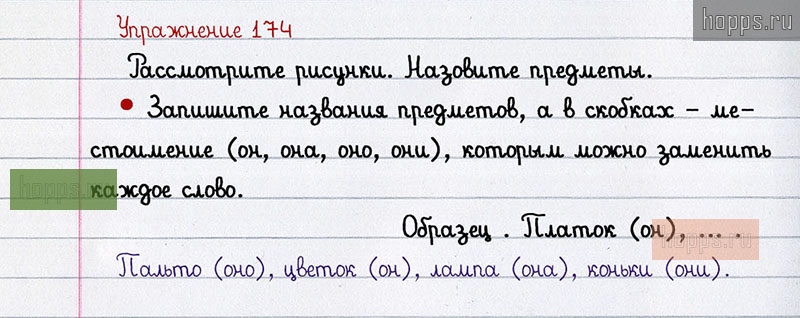 hopps.ru
Упражнение 174
Рассмотрите рисунки. Назовите предметы.
• Запишите названия предметов, а в скобках – ме-
стоимение (он, она, оно, они), которым можно заменить
hopps.ru
каждое слово.
Образец . Платок (он), ... .
hopps.ru
Пальто (оно), цветок (он), лампа (она), коньки (они).